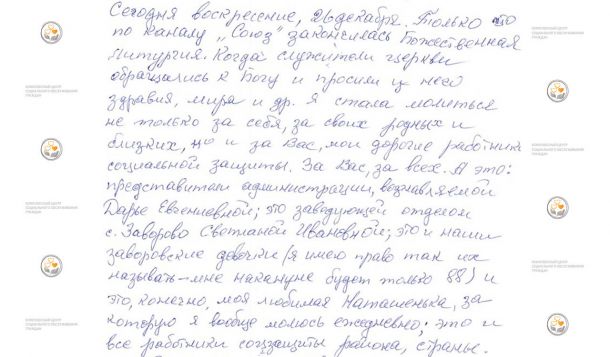 Сегодня воскресение, 26 декабря. Только что
по каналу „Союз" закончилась Божественная
Литургия. Когда служители церкви
обращались к Богу и просили у него
здравия, мира и др. я стала молиться
не только за себя, за своих родных и
близких, но и за Вас, мои дорогие работники
социальной защиты. За Вас, за всех. А это:
представители администрации, возглавляемой
Дарье Евгениевной; это заведующей отделом
с. Заворово Светланой Ивановной; это и наши
заворовские девочки (я имею право так их
называть – мне накануне будет только 88) и
это, конечно, моя любимая Наташенька, за
которую я вообще молюсь ежедневно; это и
все работники соцзащиты района, страны.